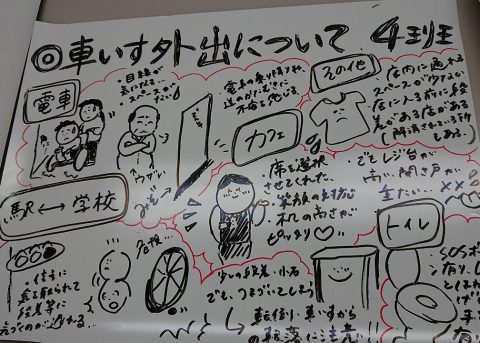 ◎車いす外出について 4班
電車
・目線が
気になる…
・スペースが
ない…
電車の乗り降りや、
道のガタガタに
不自を感じる。
その他
店内に通れる
スペースがウすい
店に入る前に段
差がある店がある
(解消されている所も
もある。)
みぞ
カフェ
席を選択
させてくれた。
笑顔の対応
机の高さが
ピッタリ♡
・でもレジ台が
高い、開き戸が
重たい…××
駅⟷学校
・信号に
気を取られて
段差等に
気づくのが遅れる…
危険…
少しの段差・小石
でも、つまづいてしまう
転倒り、車いすから
の転落に注意!!
トイレ
・SOSボ
有り、